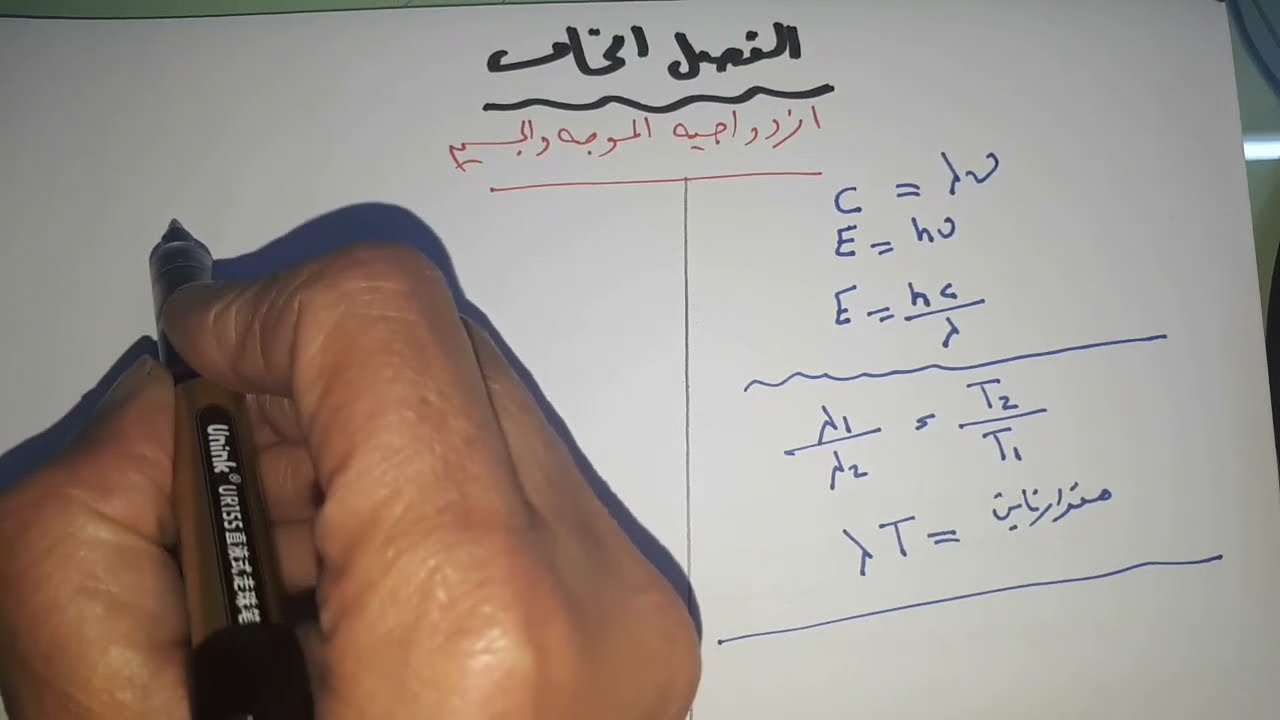 الفصل الخامس
ازدواجيه الموجه والجسيم
C = λν
E = hν
E = hc/λ
λ1/λ2 = T2/T1
λT = مقدار ثابت
Unink® UR155 直液式走珠笔